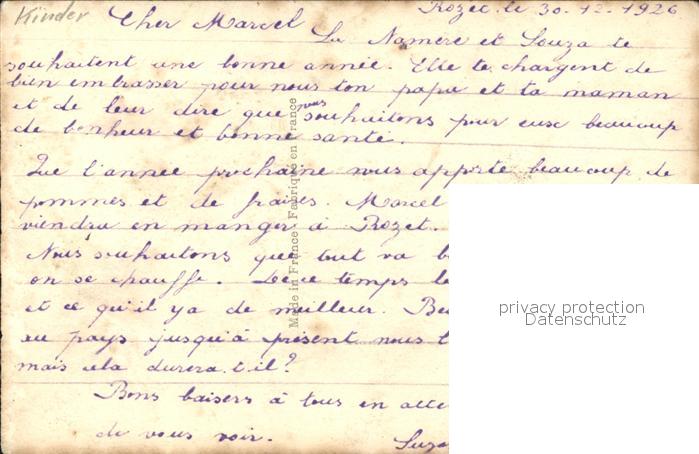 Kinder
Rozet. le 30-12-1926
Cher Marcel
La Namere et Souza te
souhaitent une bonne année. Elle te chargent de
bien embrasser pour nous ton papa et ta maman
et de leur dire que nous souhaitons pour eux beaucoup
de bonheur et bonne santé.
Que l'année prochaine vous apporte beaucoup de
pommes et de fraises. Marcel
viendra en manger à Rozet.
Nous souhaitons que tout va
on se chauffe. temps
et ce qu'il y a de meilleur.
au pays jusqu'à présent nous
mais cela durera t-il?
Bons baisers à tous en
de vous voir.
Made in France - Fabriqué en France
privacy protection
Datenschutz